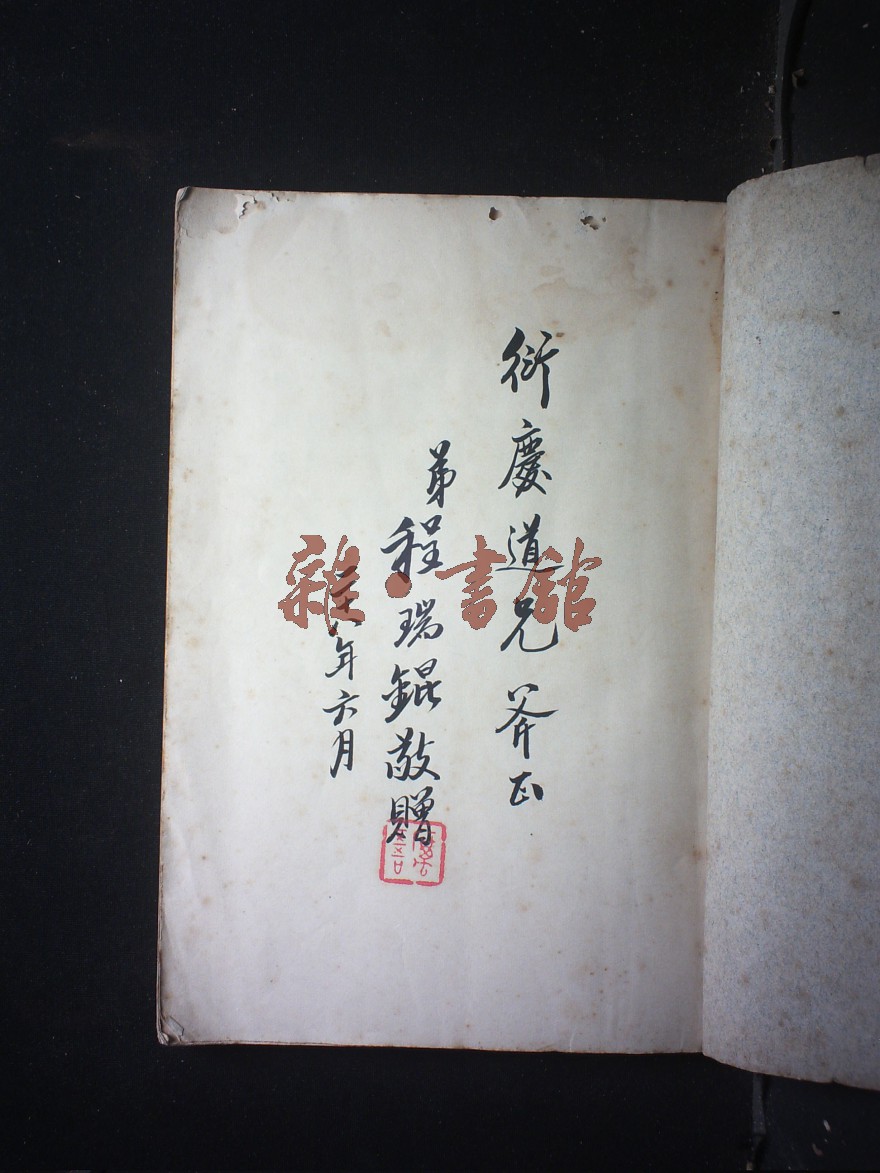 衍慶道兄斧正
弟程瑞錕敬贈
年六月
雜·書館